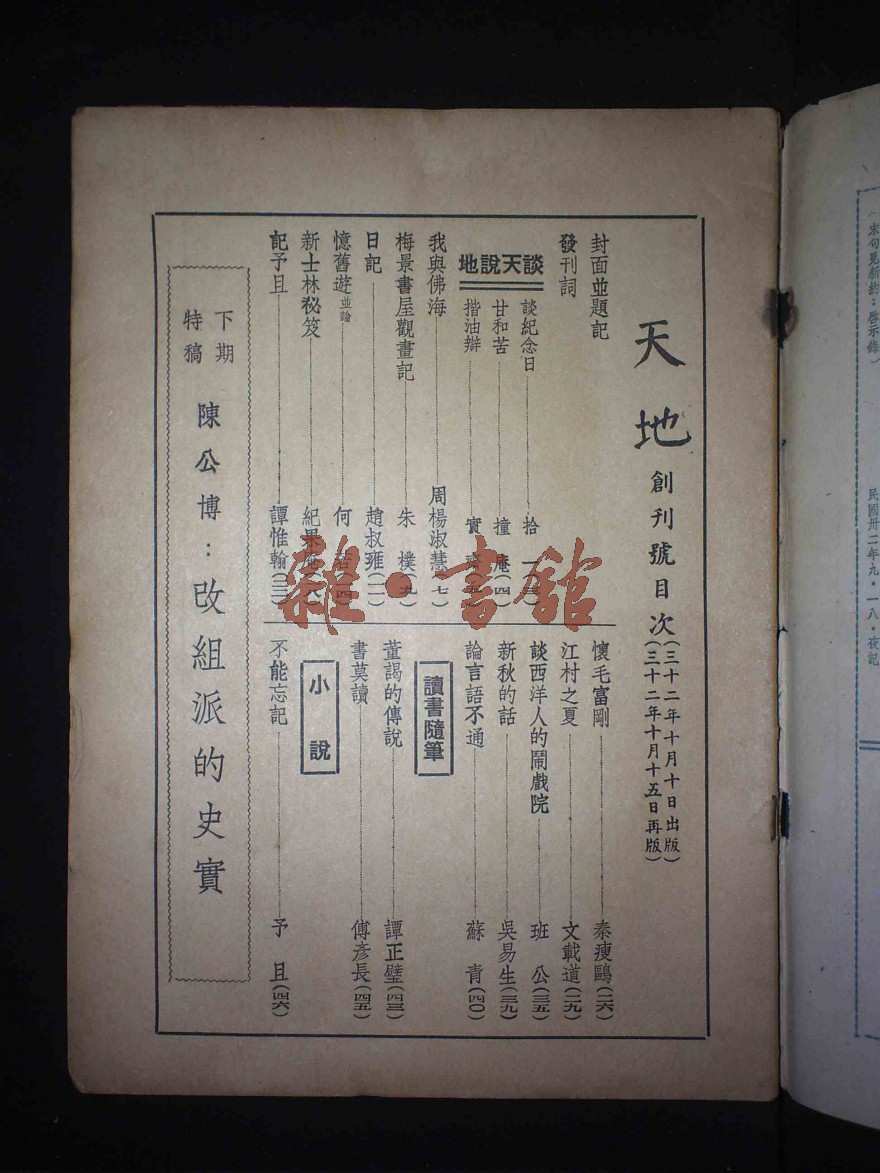 天地創刊號目次(三十二年十月十日出版)
(三十二年十月十五日再版)
封面並題記
發刊詞
談天說地
談紀念日 拾
甘和苦 撞庵(四
揩油辯 實齋
我與佛海 周楊淑慧(七)
梅景書屋觀畫記 朱樸(九)
日記 趙叔雍(一一)
憶舊遊並論 何若(一四)
新士林秘笈 紀果庵(一八)
記予且 譚惟翰
懷毛富剛 秦瘦鷗(二六)
江村之夏 文載道(二九)
談西洋人的鬧戲院 班公(三五)
新秋的話 吳易生(三九)
論言語不通 蘇青(四〇)
讀書隨筆
董謁的傳說 譚正璧(四三)
書莫讀 傅彥長(四五)
小說
不能忘記 予且(四六)
下期
特稿
陳公博：改組派的史實
雜·書館
(末句見新約：啓示錄)
民國卅二年九·一八·夜記